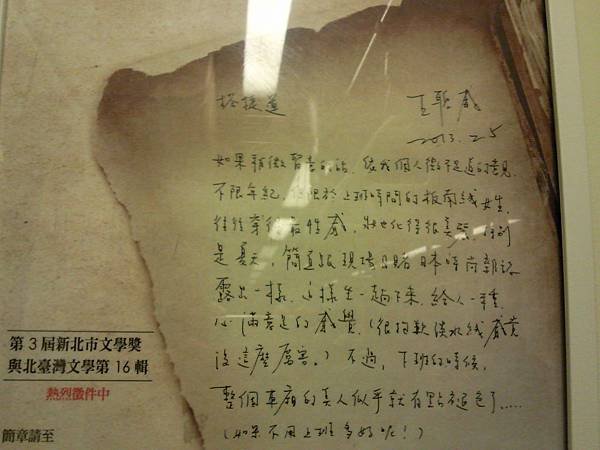 搭捷運 王聰威
2013.2.5
如果稍微留意的話,依我個人微不足道的意見,
不限年紀,但限於上班時間的板南線女生,
往往穿得最性感,妝也化得很美麗,特別
是夏天,簡直跟現場目睹日本時尚雜誌
露出一樣,這樣坐一趟下來,給人一種
心滿意足的感覺,(很抱歉淡水線感覺
沒這麼厲害。)不過,下班的時候,
整個車廂的真人似乎就有點褪色了.....
(如果不用上班多好呢!)
第3屆新北市文學獎
與北臺灣文學第16輯
熱烈徵件中
簡章請至